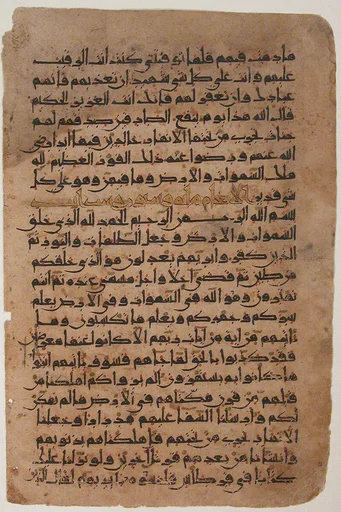 ما دمت فيهم فلما توفيتني كنت انت الرقيب
عليهم وانت على كل شي شهيد ان تعذبهم فانهم
عبادك وان تغفر لهم فانك انت العزيز الحكيم
قال الله هذا يوم ينفع الصادقين صدقهم لهم
جنات تجري من تحتها الانهار خالدين فيها ابدا رضي
الله عنهم ورضوا عنه ذلك الفوز العظيم لله
ملك السموات والارض وما فيهن وهو على كل
شي قدير الانعام مايه وستون
بسم الله الرحمن الرحيم الحمد لله الذي خلق
السموات والارض وجعل الظلمات والنور ثم
الذين كفروا بربهم يعدلون هو الذي خلقكم
من طين ثم قضى اجلا واجل مسمى عنده ثم انتم
تمترون وهو الله في السموات وفي الارض يعلم
سركم وجهركم ويعلم ما تكسبون وما
تاتيهم من اية من ايات ربهم الا كانوا عنها معرضين
فقد كذبوا بالحق لما جاهم فسوف ياتيهم انبوا
ما كانوا به يستهزون الم يروا كم اهلكنا من
قبلهم من قرن مكناهم في الارض ما لم نمكن
لكم وارسلنا السما عليهم مدرارا وجعلنا
الانهار تجري من تحتهم فاهلكناهم بذنوبهم
وانشانا من بعدهم قرنا اخرين ولو نزلنا عليك
كتابا في قرطاس فلمسوه بايديهم لقال الذين